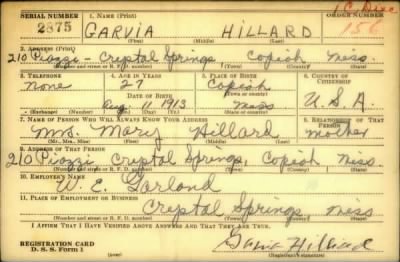 SERIAL NUMBER 1. NAME (Print) ORDER NUMBER
2875 GARVIA HILLARD 156
(First) (Middle) (Last)
2. ADDRESS (Print)
210 Piazzi - Crystal Springs, Copiah Miss.
(Number and street or R. F. D. number) (Town) (County) (State)
3. TELEPHONE 4. AGE IN YEARS 5. PLACE OF BIRTH 6. COUNTRY OF CITIZENSHIP
None 27 Copiah
DATE OF BIRTH (Town or county)
Aug. 11 1913 Miss U.S.A.
(Exchange) (Number) (Mo.) (Day) (Yr.) (State or country)
7. NAME OF PERSON WHO WILL ALWAYS KNOW YOUR ADDRESS 8. RELATIONSHIP OF THAT PERSON
Mrs. Mary Hillard mother
(Mr., Mrs., Miss) (First) (Middle) (Last)
9. ADDRESS OF THAT PERSON
210 Piazzi Crystal Springs, Copiah Miss
(Number and street or R. F. D. number) (Town) (County) (State)
10. EMPLOYER'S NAME
W. E. Garland
11. PLACE OF EMPLOYMENT OR BUSINESS
Crystal Springs, Miss
(Number and street or R. F. D. number) (Town) (County) (State)
I AFFIRM THAT I HAVE VERIFIED ABOVE ANSWERS AND THAT THEY ARE TRUE.
REGISTRATION CARD
D. S. S. Form 1 Garvia Hilliard
(Registrant's signature)